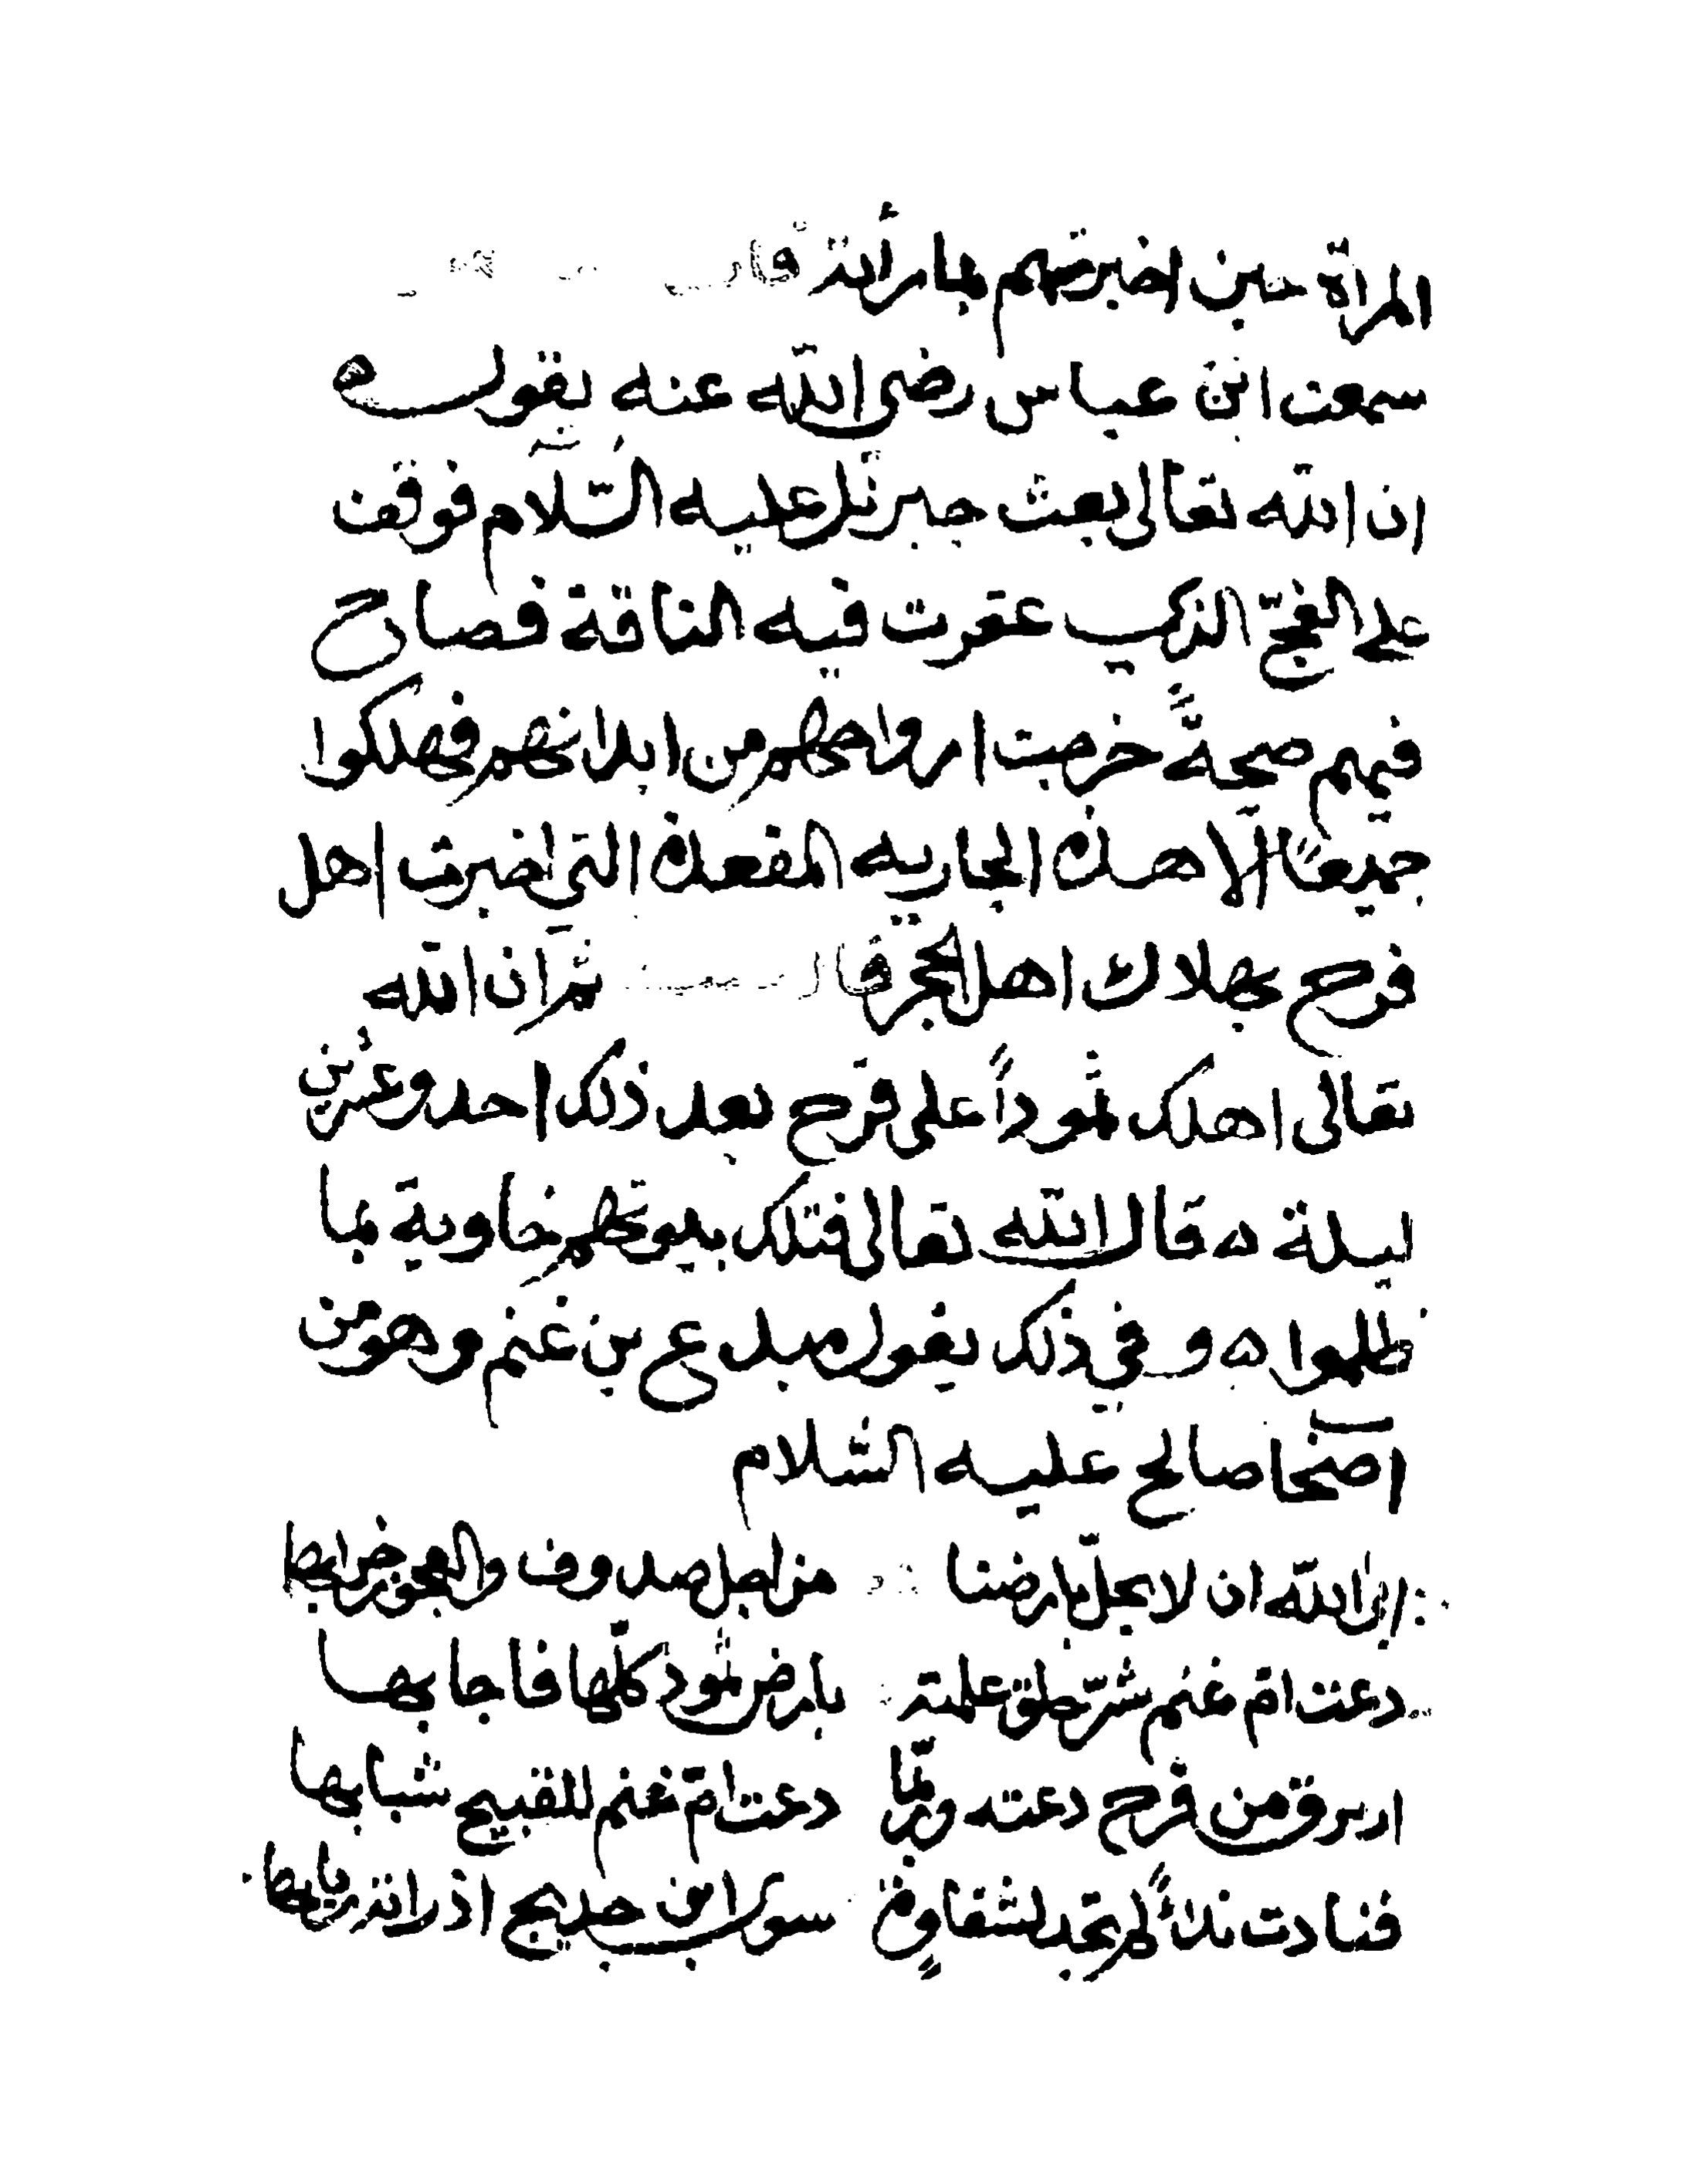 المراة حين اخبرتهم بما رأته قال
سمعت ابن عباس رضى الله عنه يقول ه
ان الله تعالى بعث جبرئل عليه السّلام فوقف
على الفجّ الذي عقرت فيه الناقة فصاح
فيهم صيحةً خرجت ارواحهم من ابدانهم فهلكوا
جميعًا الا هذه الجاريه المقعدة التي اخبرت اهل
قرح بهلاك اهل الحجر قال ثم ان الله
تعالى اهلك ثموداً على قرح بعد ذلك احد وعشرين
ليلة ه قال الله تعالى فتلك بيوتهم خاوية بما
ظلموا ه وفي ذلك يقول مبدع بن غنم وهو من
اصحاب صالح عليه السّلام
الله ان لا يحلّ بارضنا من اجل صدوف والعجوز
دعت ام غنم شرّ خلق علمته بارض ثمود كلّها فاجابها
من قرح دعته دعت امّ غنم للقبيح شبابها
فنادت ندآءً لم تجد